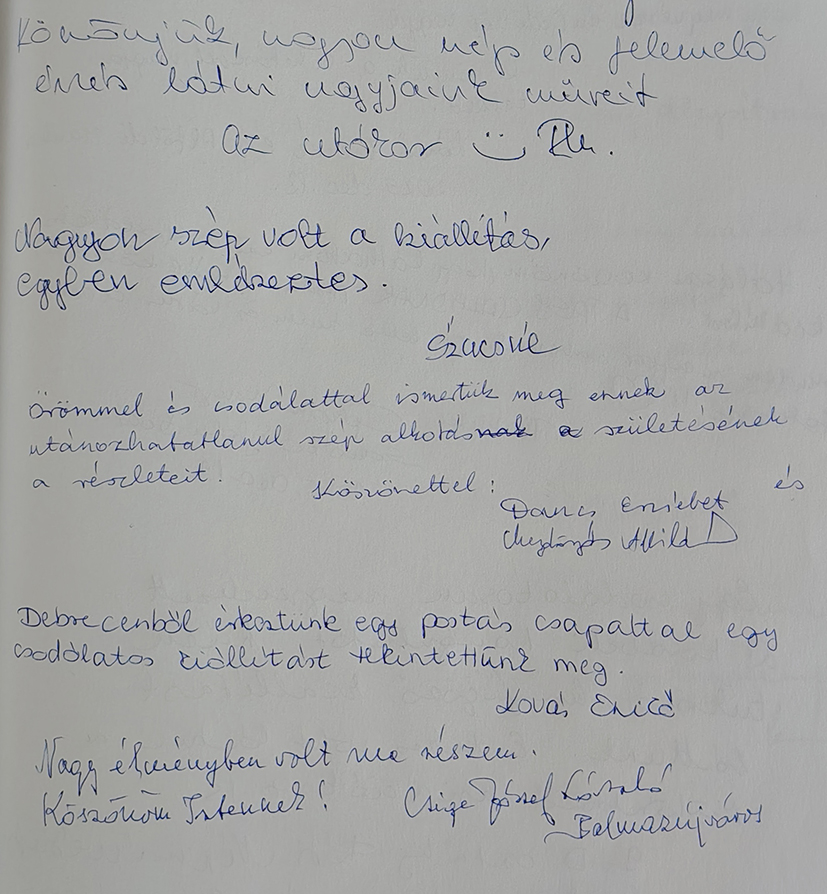 Köszönjük, nagyon szép és felemelő
érzés látni nagyjaink műveit
Az utókor
Nagyon szép volt a kiállítás,
egyben emlékeztes.
Örömmel és csodálattal ismertük meg ennek az
utánozhatatlanul szép alkotásnak a születésének
a részleteit.
Köszönettel: és
Erzsébet
Attila
Debrecenből érkeztünk egy postás csapattal egy
csodálatos kiállítást tekintettünk meg.
Kovás Enikő
Nagy élményben volt ma részem.
Köszönöm Istennek!
Csige József László
Balmazújváros